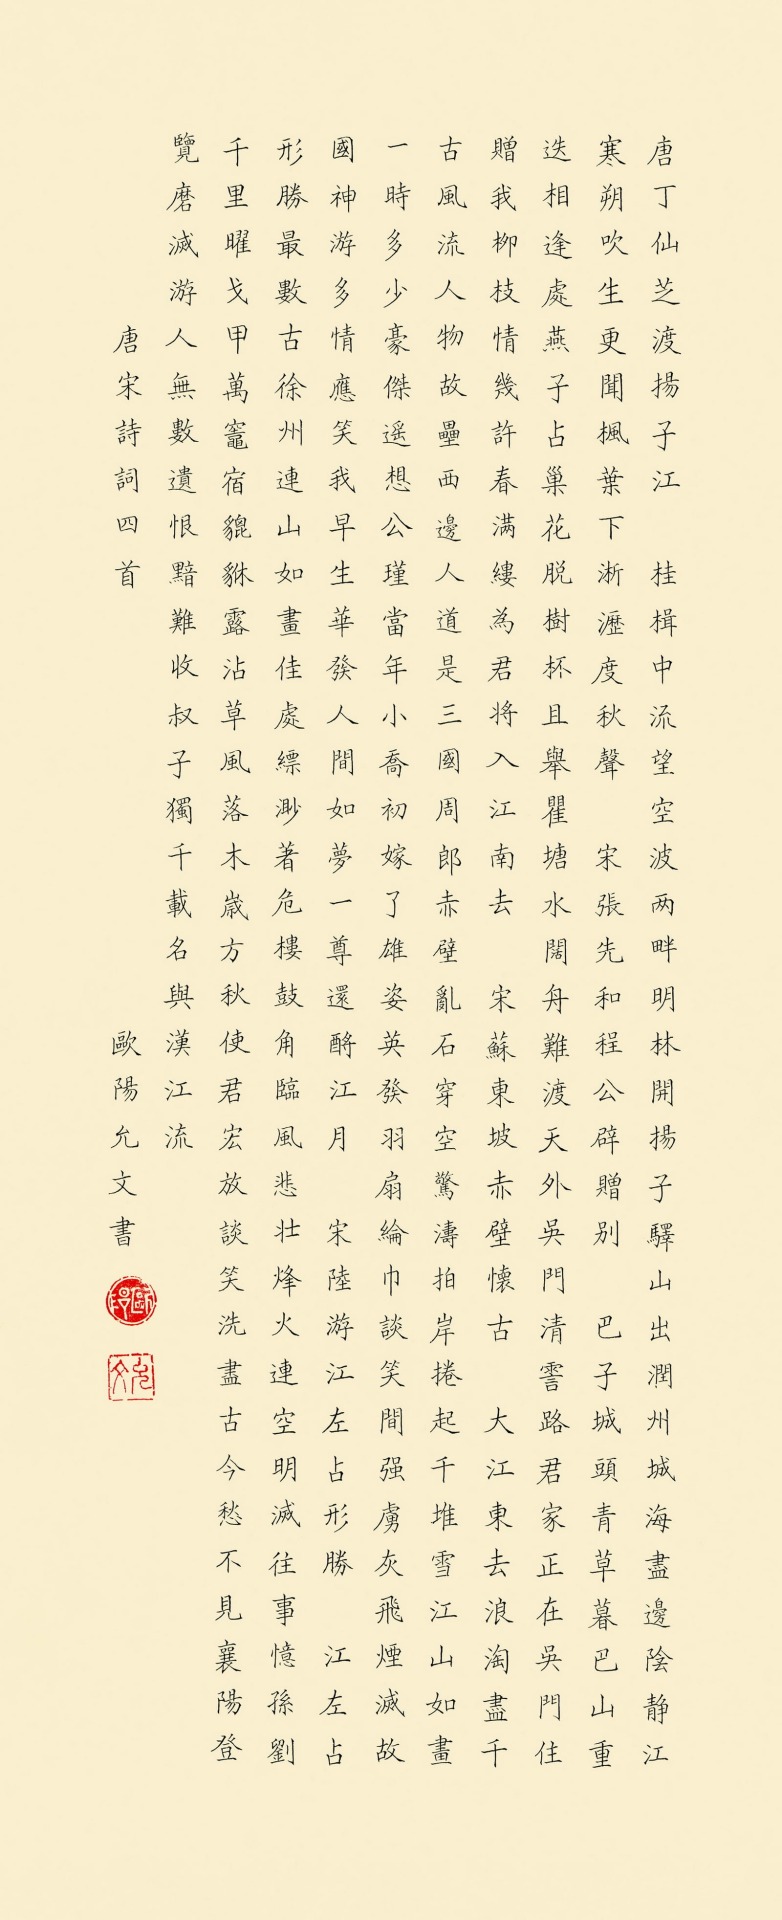 唐丁仙芝渡揚子江 桂楫中流望空波两畔明林開揚子驛山出潤州城海盡邊陰静江
寒朔吹生更聞楓葉下淅瀝度秋聲 宋張先和程公辟贈别 巴子城頭青草暮巴山重
迭相逢處燕子占巢花脱樹杯且舉瞿塘水闊舟難渡天外吳門清霅路君家正在吳門住
贈我柳枝情幾許春滿縷為君将入江南去 宋蘇東坡赤壁懷古 大江東去浪淘盡千
古風流人物故壘西邊人道是三國周郎赤壁亂石穿空驚濤拍岸捲起千堆雪江山如畫
一時多少豪傑遥想公瑾當年小喬初嫁了雄姿英發羽扇綸巾談笑間强虜灰飛煙滅故
國神游多情應笑我早生華發人間如夢一尊還酹江月 宋陸游江左占形勝 江左占
形勝最數古徐州連山如畫佳處縹渺著危樓鼓角臨風悲壮烽火連空明滅往事憶孫劉
千里曜戈甲萬竈宿貔貅露沾草風落木歲方秋使君宏放談笑洗盡古今愁不見襄陽登
覽磨滅游人無數遺恨黯難收叔子獨千載名與漢江流
唐宋詩詞四首 歐陽允文書
歐陽
允文